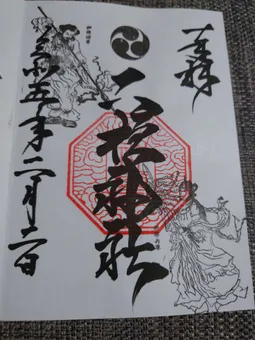 奉拝
二柱神社
令和五年二月六日